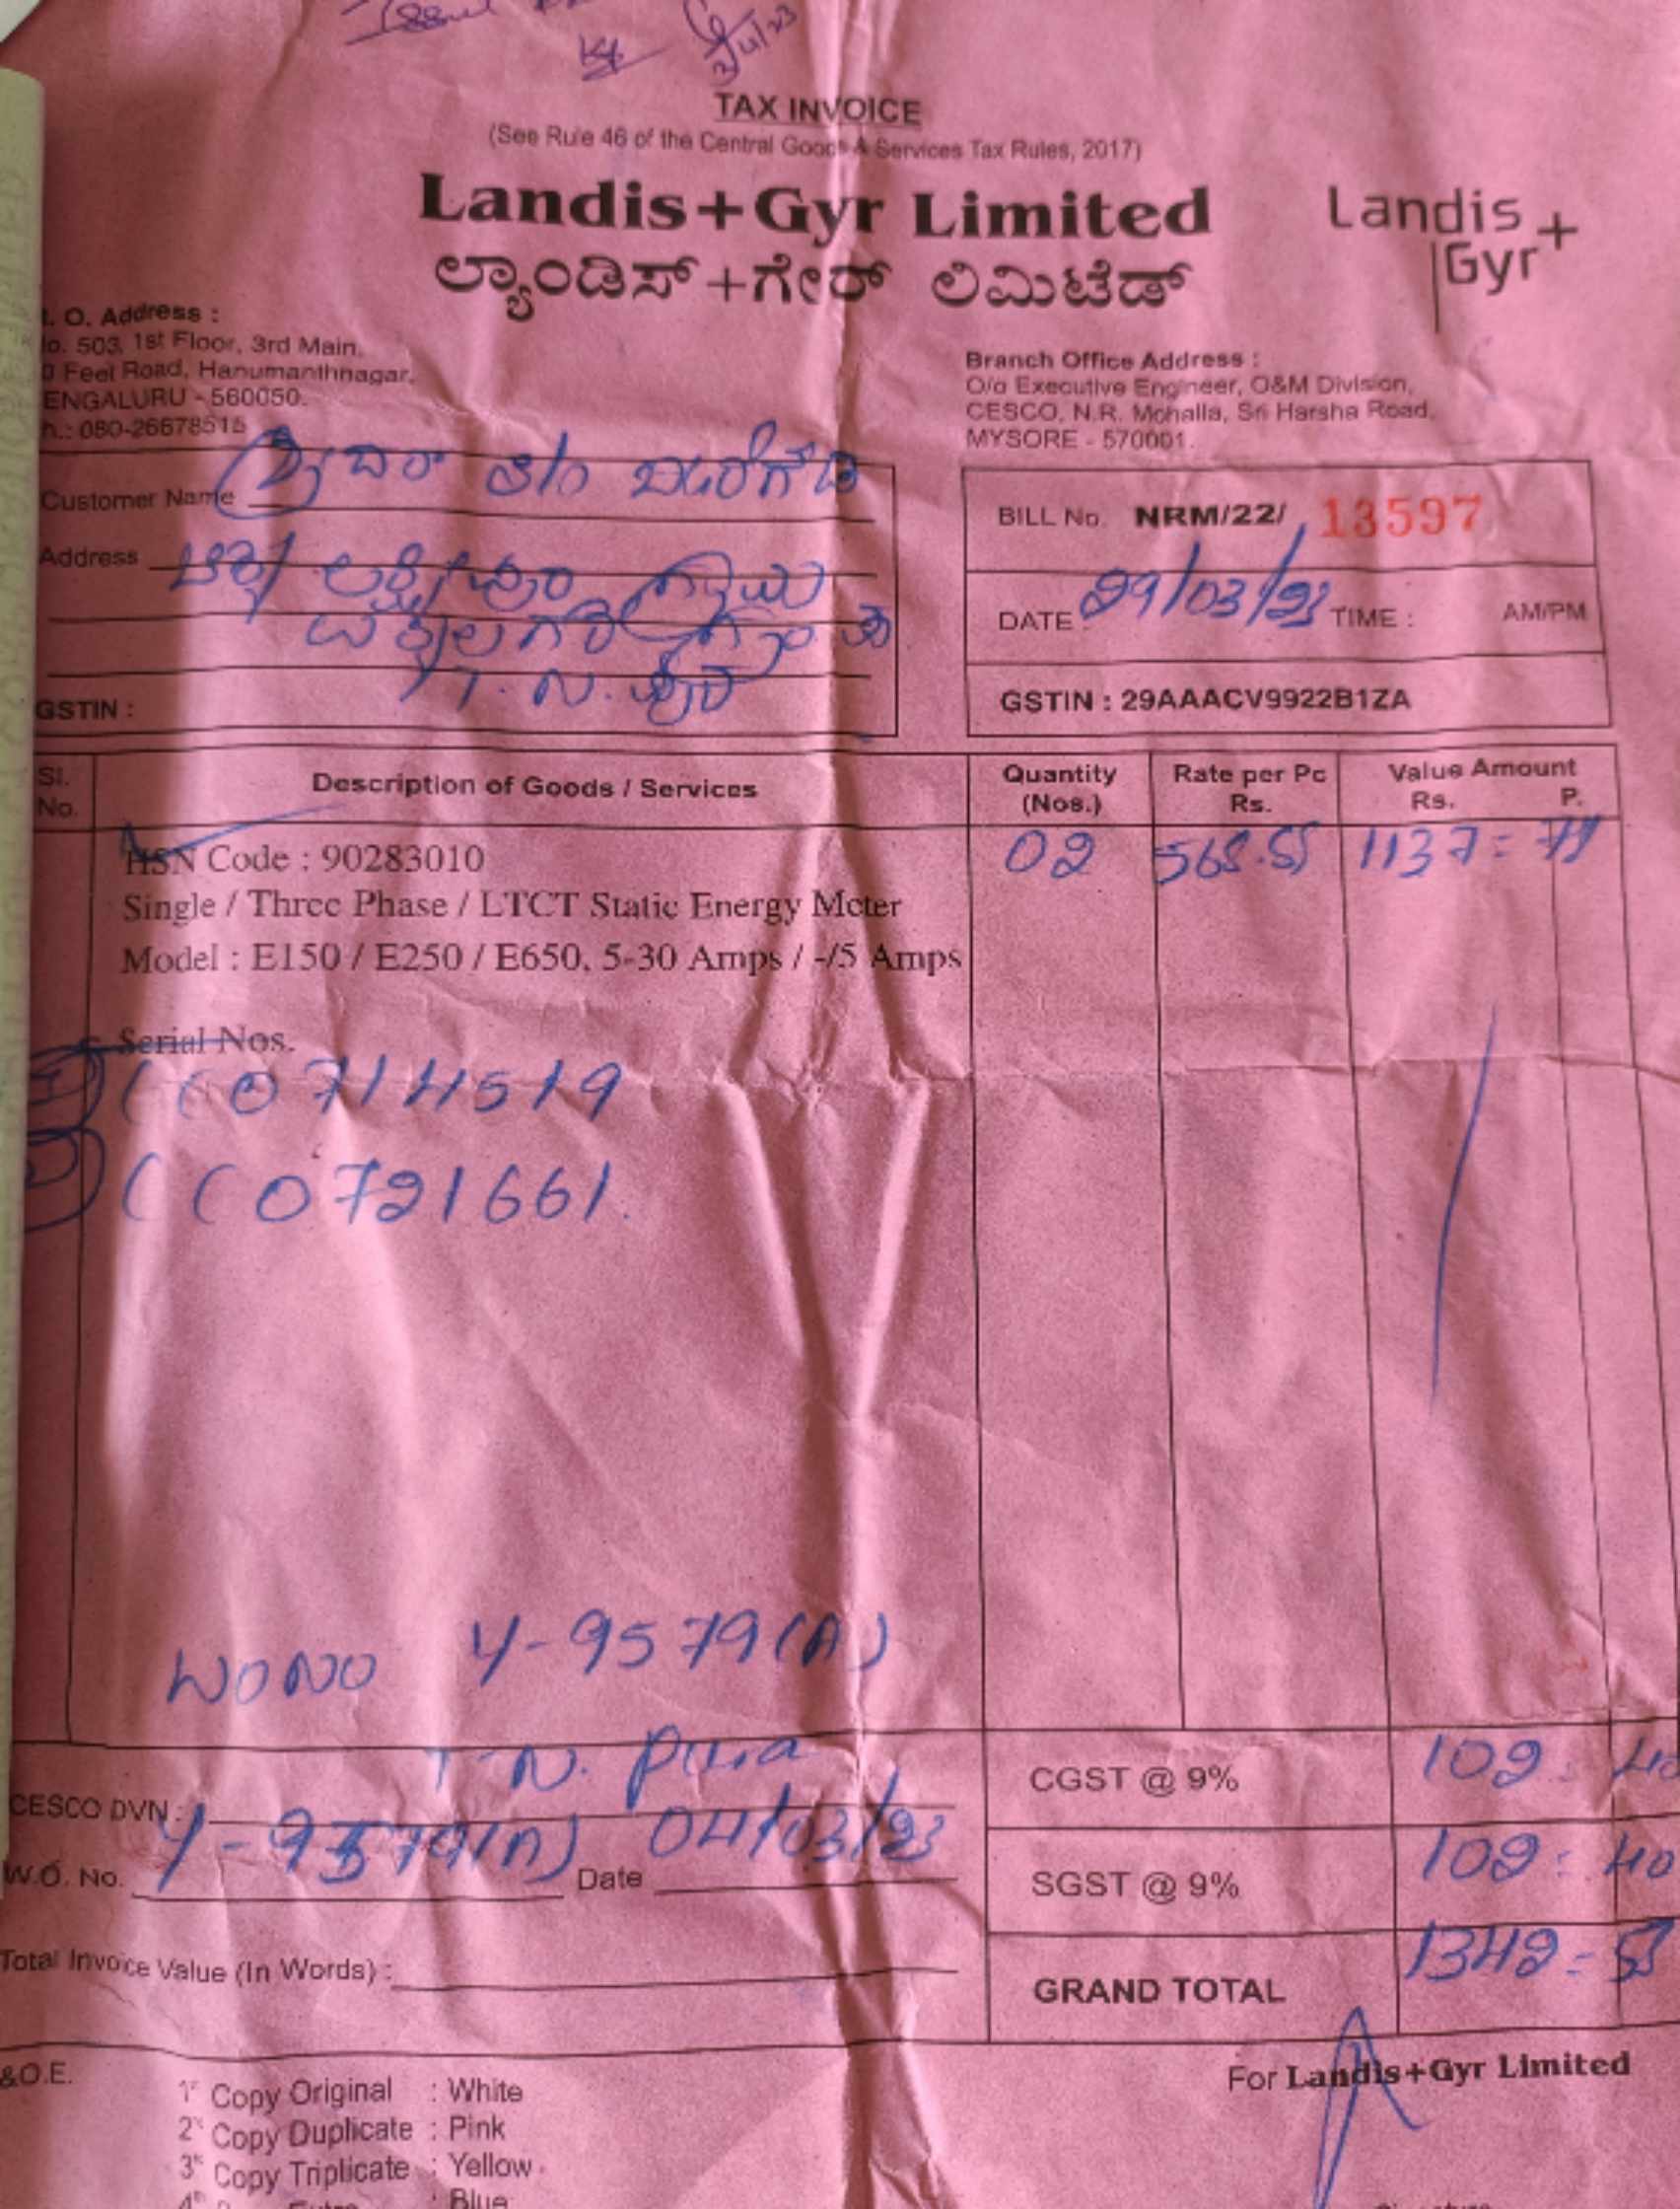 TAX INVOICE
(See Rule 46 of the Central Goods & Services Tax Rules, 2017)
Landis+Gyr Limited
ಲ್ಯಾಂಡಿಸ್+ಗೇರ್ ಲಿಮಿಟೆಡ್
Landis
Gyr+
. O. Address :
o. 503, 1st Floor, 3rd Main,
0 Feet Road, Hanumanthnagar,
ENGALURU - 560050.
h.: 080-26678515
Branch Office Address :
O/o Executive Engineer, O&M Division,
CESCO, N.R. Mohalla, Sri Harsha Road,
MYSORE - 570001.
Customer Name
Address
GSTIN :
BILL No. NRM/22/ 13597
DATE 29/03/23 TIME : AM/PM
GSTIN : 29AAACV9922B1ZA
Sl. No.
Description of Goods / Services
Quantity (Nos.)
Rate per Pc Rs.
Value Amount Rs. P.
HSN Code : 90283010
02
1137=
Single / Three Phase / LTCT Static Energy Meter
Model : E150 / E250 / E650, 5-30 Amps / -/5 Amps
Serial Nos.
CC0714519
CC0721661.
WONO Y-9579(A)
T.N. Pura
CESCO DVN :
W.O. No. Y-9579(A) Date 04/03/23
Total Invoice Value (In Words) :
CGST @ 9% 102=40
SGST @ 9% 102=40
GRAND TOTAL 1342=
&O.E.
1st Copy Original : White
2nd Copy Duplicate : Pink
3rd Copy Triplicate : Yellow
: Blue
For Landis+Gyr Limited